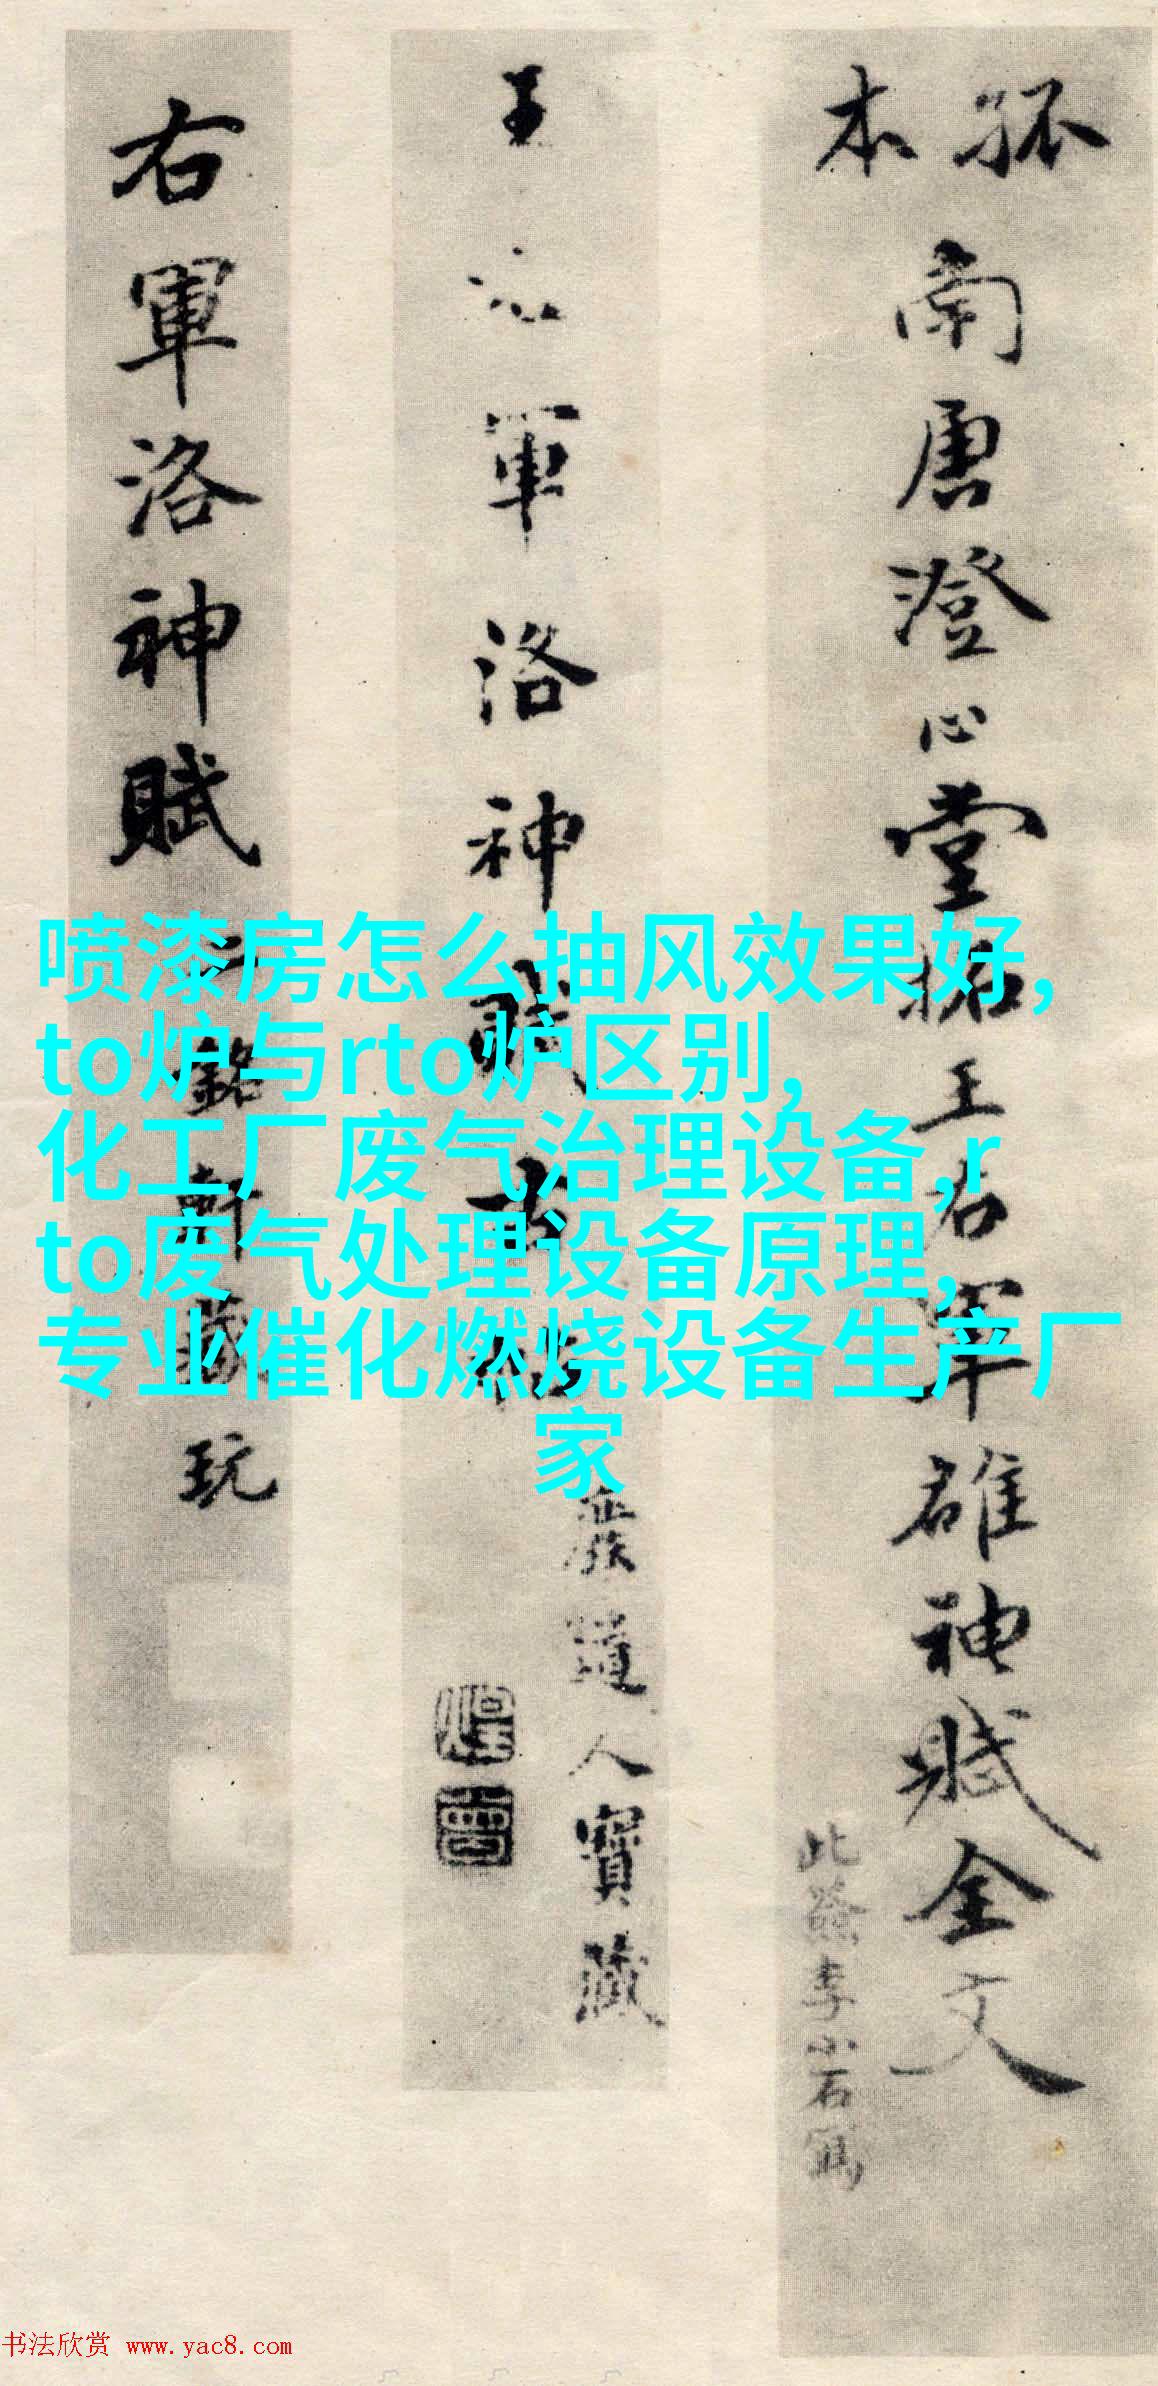 孤本
南唐澄心堂拓王右軍雒神賦全文
此籤李小石寫
王右軍洛神賦
道人寶藏
右軍洛神賦
銘軒藏玩
喷漆房怎么抽风效果好,
to炉与rto炉区别,
化工厂废气治理设备,r
to废气处理设备原理,
专业催化燃烧设备生产厂
家
书法欣赏 www.yac8.com